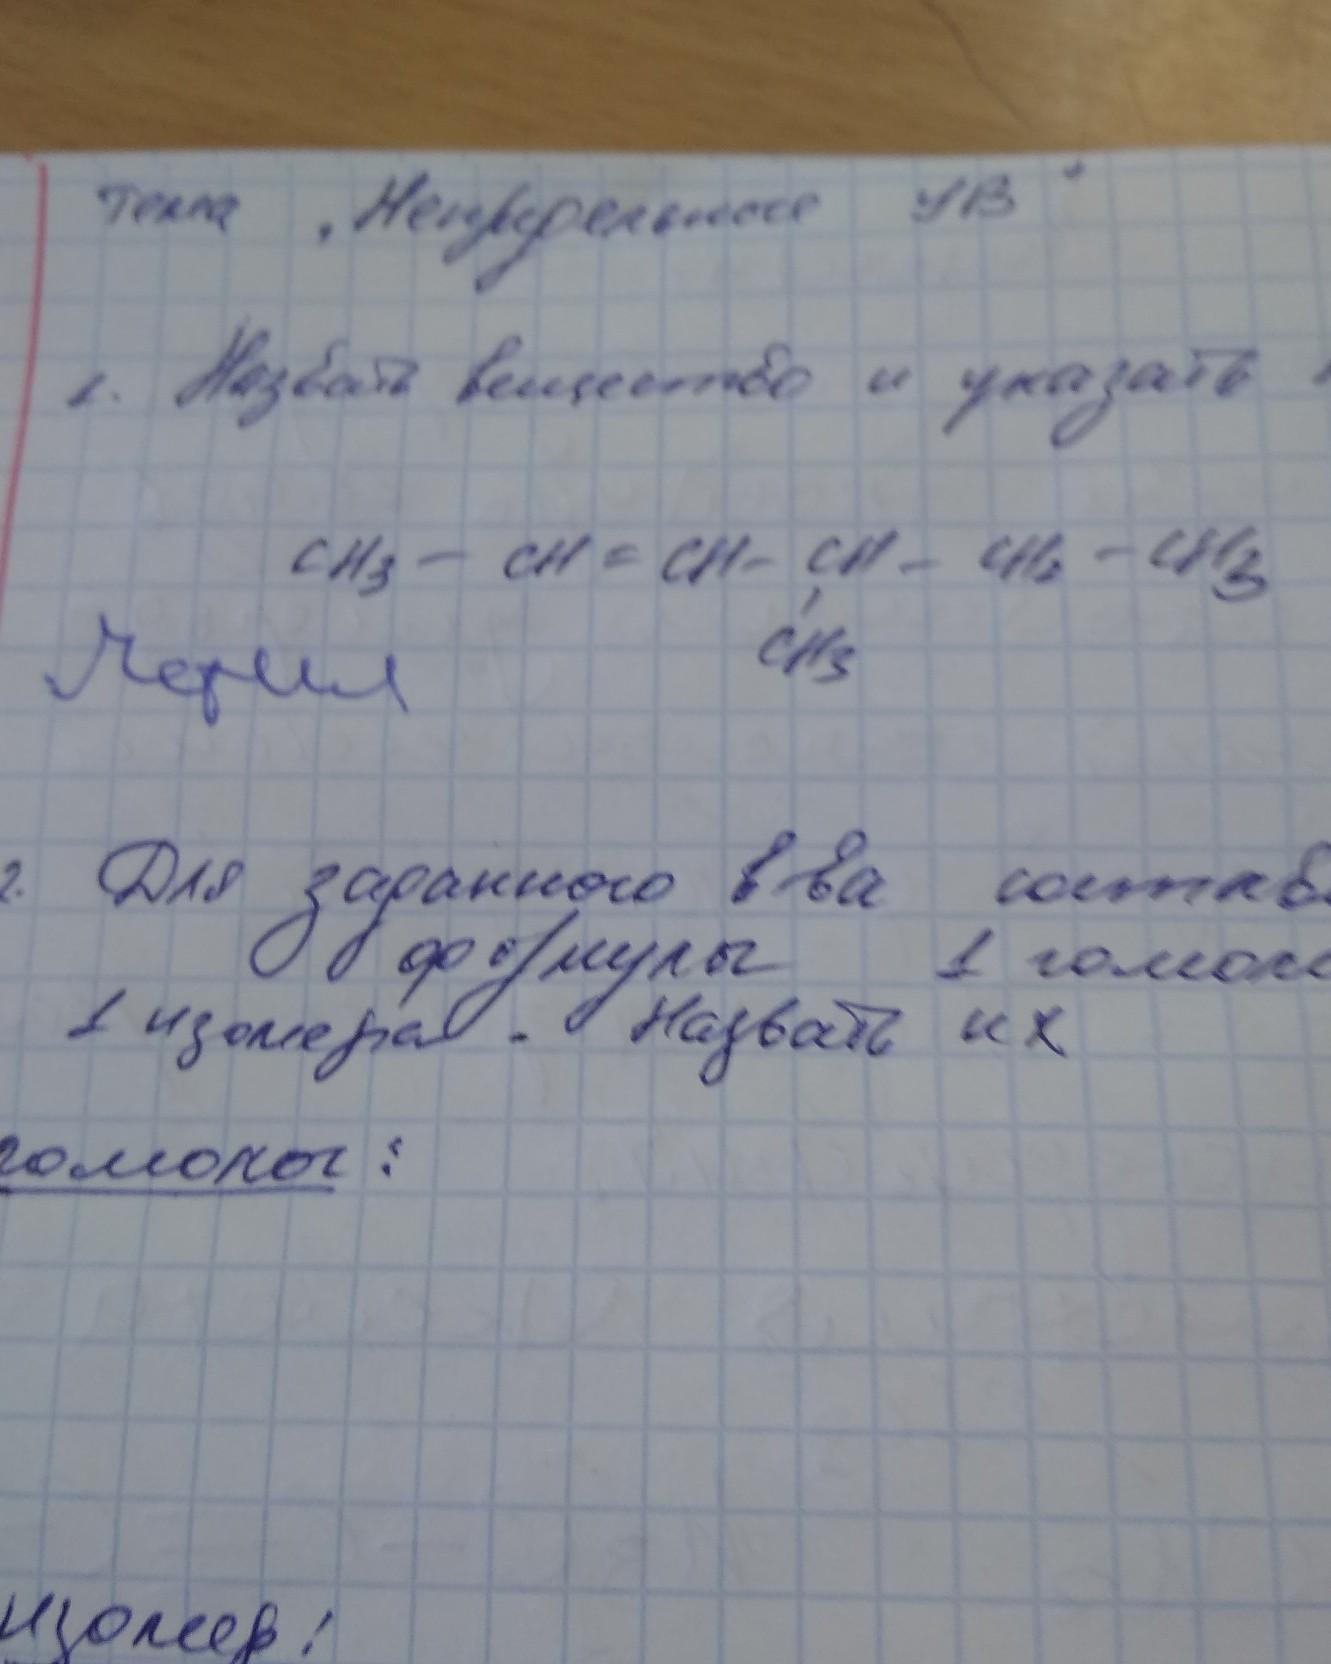 Тема „Непредельные УВ"
1. Назвать вещество и указать
CH3 - CH = CH - CH - CH2 - CH3
CH3
Метил
2. Для заданного в-ва состав
формулы 1 гомоло
1 изомера. Назвать их
гомологи:
Изомер: